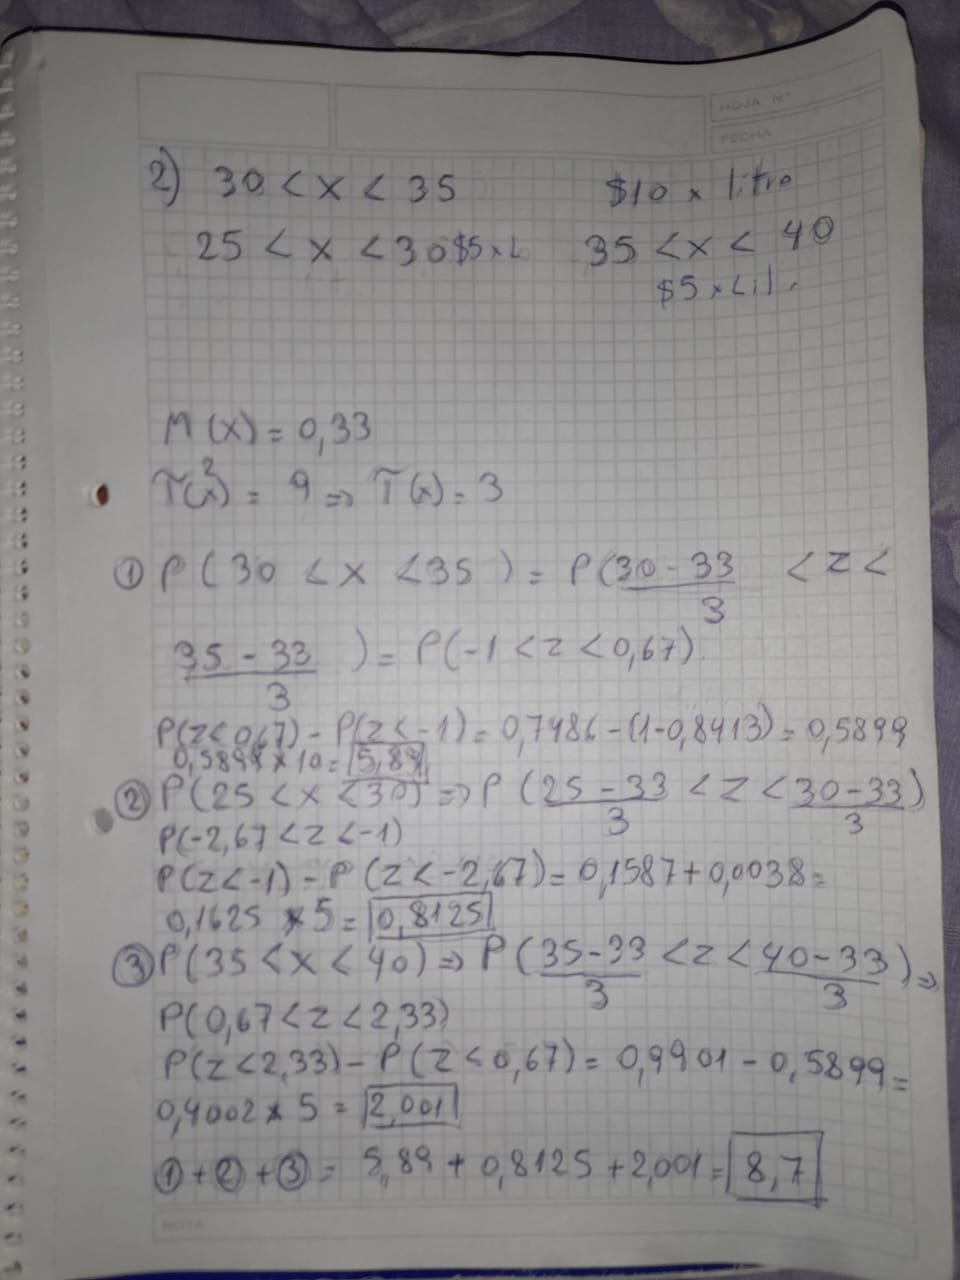 HOJA N°
FECHA
2) 30 < x < 35 $10 x litro
25 < x < 30 $5 x L 35 < x < 40
$5 x Lit.
M(x) = 0,33
T(x)² = 9 => T(x) = 3
① P(30 < x < 35) = P(30-33/3 < z <
35-33/3) = P(-1 < z < 0,67)
P(z<0,67) - P(z<-1) = 0,7486 - (1-0,8413) = 0,5899
0,5899 x 10 = 5,89
② P(25 < x < 30) => P(25-33/3 < z < 30-33/3)
P(-2,67 < z < -1)
P(z<-1) - P(z<-2,67) = 0,1587 + 0,0038 =
0,1625 x 5 = 0,8125
③ P(35 < x < 40) => P(35-33/3 < z < 40-33/3) =>
P(0,67 < z < 2,33)
P(z<2,33) - P(z<0,67) = 0,9901 - 0,5899 =
0,4002 x 5 = 2,001
① + ② + ③ = 5,89 + 0,8125 + 2,001 = 8,7
NOTA